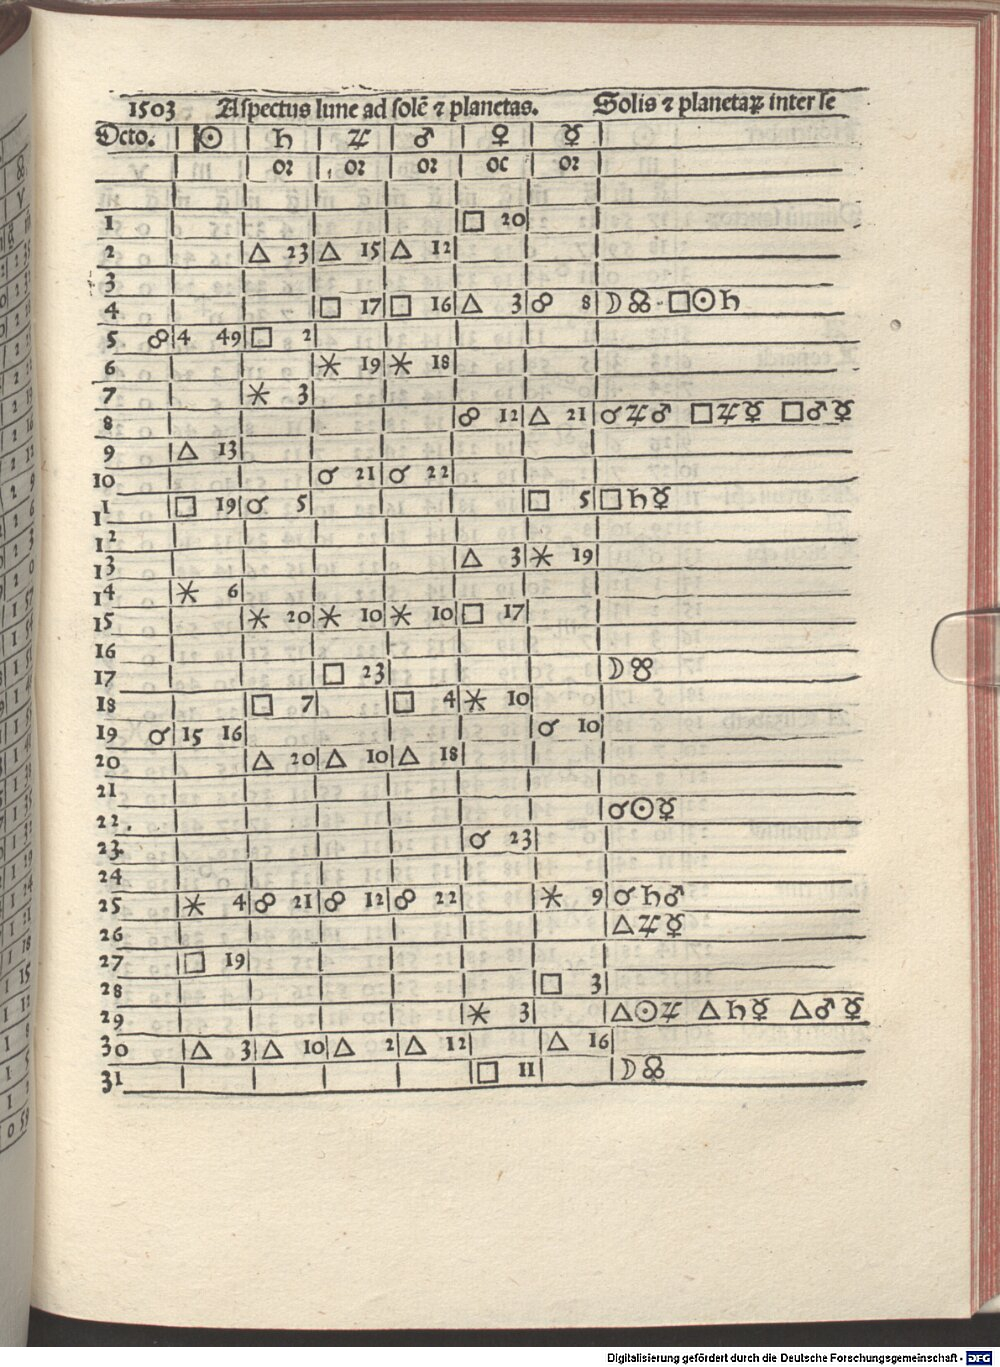 1503 Aſpectus lune ad ſolē ⁊ planetas. Solis ⁊ planetaꝝ inter ſe
Octo. ☉ ♄ ♃ ♂ ♀ ☿
oꝛ oꝛ oꝛ oc oꝛ
1 □ 20
2 △ 23 △ 15 △ 12
3
4 □ 17 □ 16 △ 3 ☍ 8 ☽ ☊ · □ ☉ ♄
5 ☍ 4 49 □ 2
6 ⚹ 19 ⚹ 18
7 ⚹ 3
8 ☍ 12 △ 21 ☌ ♃ ♂ □ ♃ ☿ □ ♂ ☿
9 △ 13
10 ☌ 21 ☌ 22
11 □ 19 ☌ 5 □ 5 □ ♄ ☿
12
13 △ 3 ⚹ 19
14 ⚹ 6
15 ⚹ 20 ⚹ 10 ⚹ 10 □ 17
16
17 □ 23 ☽ ☋
18 □ 7 □ 4 ⚹ 10
19 ☌ 15 16 ☌ 10
20 △ 20 △ 10 △ 18
21
22 ☌ ☉ ☿
23 ☌ 23
24
25 ⚹ 4 ☍ 21 ☍ 12 ☍ 22 ⚹ 9 ☌ ♄ ♂
26 △ ♃ ☿
27 □ 19
28 □ 3
29 ⚹ 3 △ ☉ ♃ △ ♄ ☿ △ ♂ ☿
30 △ 3 △ 10 △ 2 △ 12 △ 16
31 □ 11 ☽ ☊
Digitalisierung gefördert durch die Deutsche Forschungsgemeinschaft - DFG